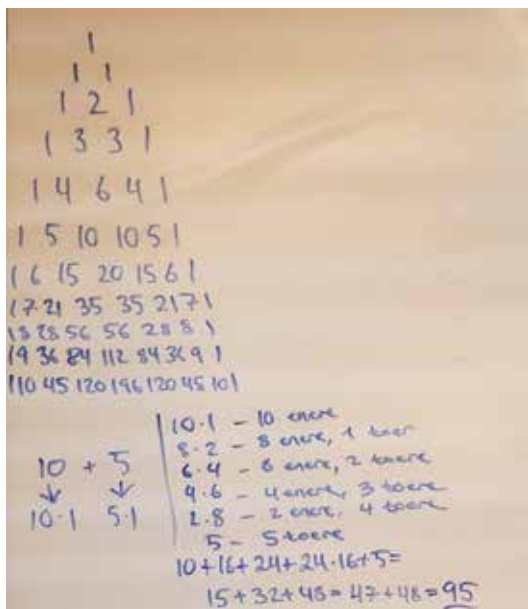 1
1 1
1 2 1
1 3 3 1
1 4 6 4 1
1 5 10 10 5 1
1 6 15 20 15 6 1
1 7 21 35 35 21 7 1
1 8 28 56 56 28 8 1
1 9 36 84 112 84 36 9 1
1 10 45 120 196 120 45 10 1
10 + 5
↓ ↓
10·1 5·1
10·1 - 10 enere
8·2 - 8 enere, 1 toer
6·4 - 6 enere, 2 toere
4·6 - 4 enere, 3 toere
2·8 - 2 enere, 4 toere
5 - 5 toere
10+16+24+24·16+5=
15+32+48=47+48=95